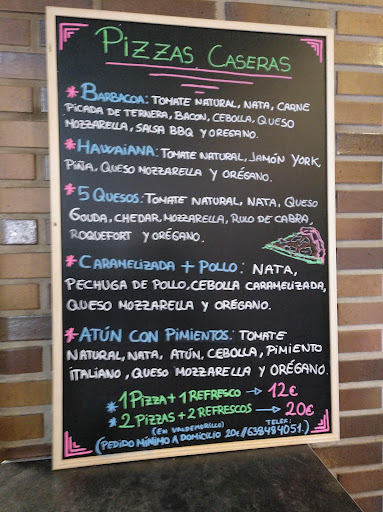 PIZZAS CASERAS
* BARBACOA: TOMATE NATURAL, NATA, CARNE
PICADA DE TERNERA, BACON, CEBOLLA, QUESO
MOZZARELLA, SALSA BBQ Y ORÉGANO.
* HAWAIANA: TOMATE NATURAL, JAMÓN YORK,
PIÑA, QUESO MOZZARELLA Y ORÉGANO.
* 5 QUESOS: TOMATE NATURAL, NATA, QUESO
GOUDA, CHEDAR, MOZZARELLA, RULO DE CABRA,
ROQUEFORT Y ORÉGANO.
* CARAMELIZADA + POLLO: NATA,
PECHUGA DE POLLO, CEBOLLA CARAMELIZADA,
QUESO MOZZARELLA Y ORÉGANO.
* ATÚN CON PIMIENTOS: TOMATE
NATURAL, NATA, ATÚN, CEBOLLA, PIMIENTO
ITALIANO, QUESO MOZZARELLA Y ORÉGANO.
* 1 PIZZA + 1 REFRESCO → 12€
* 2 PIZZAS + 2 REFRESCOS → 20€
(EN VALDEMORILLO) TELEF:
(PEDIDO MÍNIMO A DOMICILIO 20€ // 638484051.)